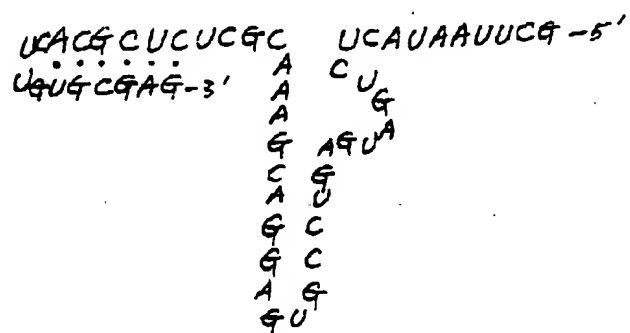 UCACGCUCUCGC UCAUAAUUCG-5'
UGUGCGAG-3' A C
A U
A G
G AGUA
C G
A U
G C
G C
A G
GU